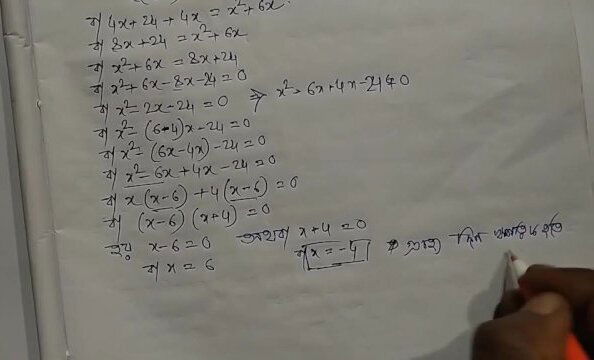 বা 4x+24+4x = x²+6x
বা 8x+24 = x²+6x
বা x²+6x = 8x+24
বা x²+6x-8x-24=0
বা x²-2x-24=0 ⇒ x²-6x+4x-24=0
বা x²-(6-4)x-24=0
বা x²-(6x-4x)-24=0
বা x²-6x+4x-24=0
বা x(x-6)+4(x-6)=0
বা (x-6)(x+4)=0
হয় x-6=0 অথবা x+4=0
বা x=6 বা x=-4